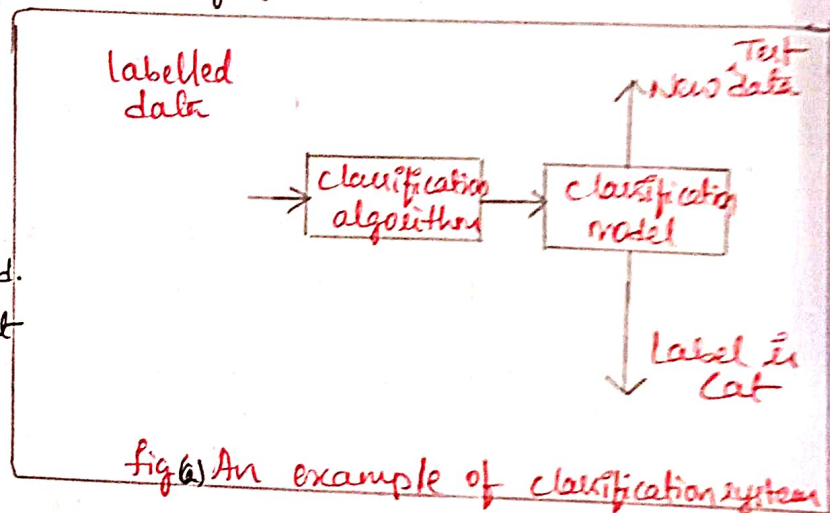 labelled
data
Test
New data
classification
algorithm
classification
model
d.
Label is
Cat
fig(a) An example of classification system